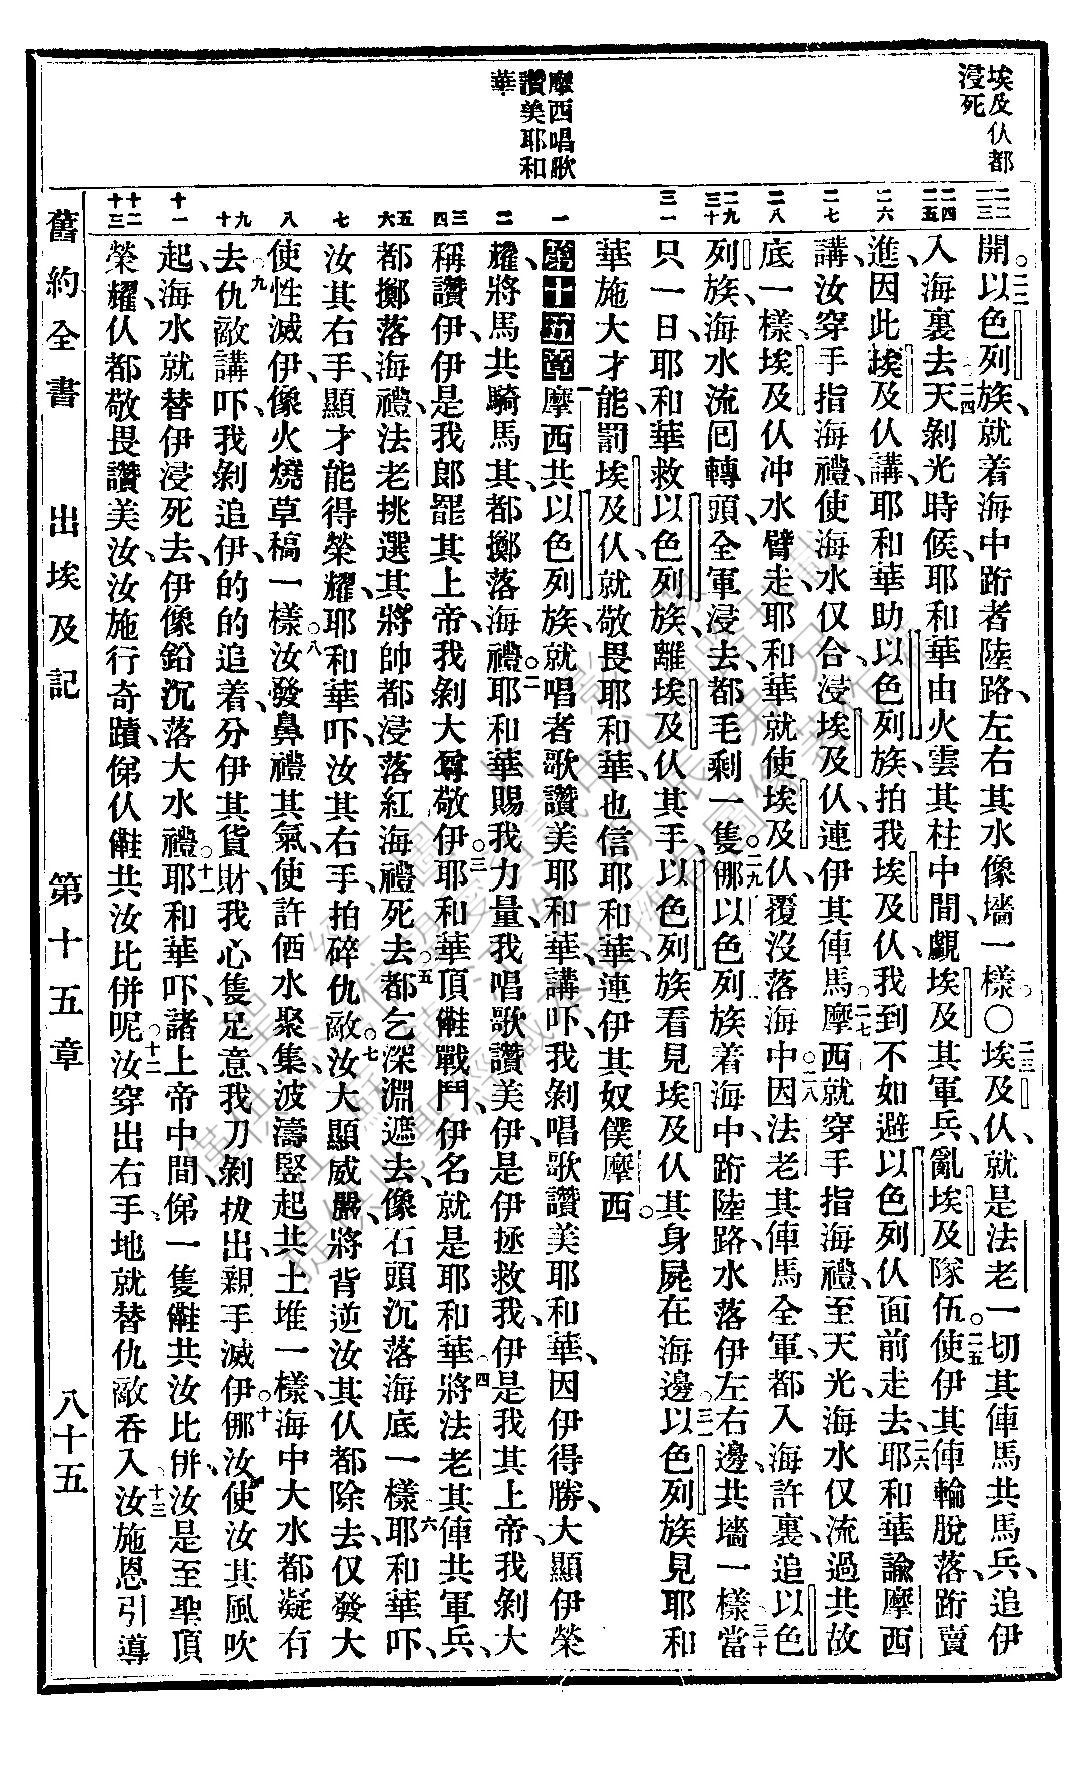 埃及仈都
浸死
摩西唱歌
讚美耶和
華
開以色列族、就着海中跨者陸路、左右其水像墻一樣。〇埃及仈、就是法老一切其俥馬共馬兵、追伊
入海裏去。天剝光時候、耶和華由火雲其柱中間、覷埃及其軍兵、亂埃及隊伍。使伊其俥輪脫落、跨賣
進、因此埃及仈講、耶和華助以色列族、拍我埃及仈、我到不如避以色列仈面前走去。耶和華諭摩西
講、汝穿手指海禮、使海水仅合、浸埃及仈、連伊其俥馬。摩西就穿手指海禮、至天光、海水仅流過共故
底一樣、埃及仈冲水臂走、耶和華就使埃及仈、覆沒落海中。因法老其俥馬全軍、都入海許裏、追以色
列族、海水流囘轉頭、全軍浸去、都毛剩一隻。㑚以色列族着海中、跨陸路、水落伊左右邊、共墻一樣。當
只一日、耶和華救以色列族、離埃及仈其手、以色列族看見埃及仈其身屍在海邊。以色列族見耶和
華施大才能、罰埃及仈、就敬畏耶和華、也信耶和華、連伊其奴僕摩西。
第十五章 摩西共以色列族、就唱者歌讚美耶和華、講吓、我剝唱歌讚美耶和華、因伊得勝、大顯伊榮
耀、將馬共騎馬其、都擲落海禮。耶和華賜我力量、我唱歌讚美伊、是伊拯救我、伊是我其上帝、我剝大
稱讚伊、伊是我郎罷其上帝、我剝大尊敬伊。耶和華頂㑸戰鬥、伊名就是耶和華。將法老其俥共軍兵、
都擲落海禮、法老挑選其將帥都浸落紅海禮死去。都乞深淵遮去、像石頭沉落海底一樣。耶和華吓、
汝其右手、顯才能得榮耀、耶和華吓、汝其右手、拍碎仇敵。汝大顯威嚴、將背逆汝其仈都除去、仅發大
使性滅伊、像火燒草稿一樣。汝發鼻禮其氣、使許個水聚集、波濤竪起共土堆一樣、海中大水都凝有
去。仇敵講吓、我剝追伊、的的追着、分伊其貨財、我心隻足意、我刀剝拔出、親手滅伊。㑚汝使汝其風吹
起、海水就替伊浸死去、伊像鉛沉落大水禮。耶和華吓、諸上帝中間、俤一隻㑸共汝比併、汝是至聖頂
榮耀、仈都敬畏讚美汝、汝施行奇蹟、俤仈㑸共汝比併呢。汝穿出右手、地就替仇敵呑入。汝施恩引導
舊約全書 出埃及記 第十五章 八十五